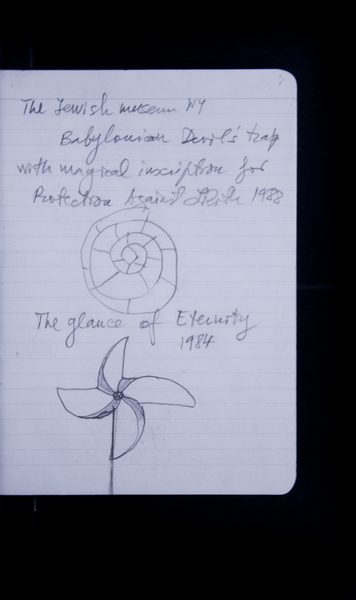 The Jewish museum NY
Babylonian Devil's trap
with magical inscription for
Protection Against Lilith 1988
The glance of Eternity
1984